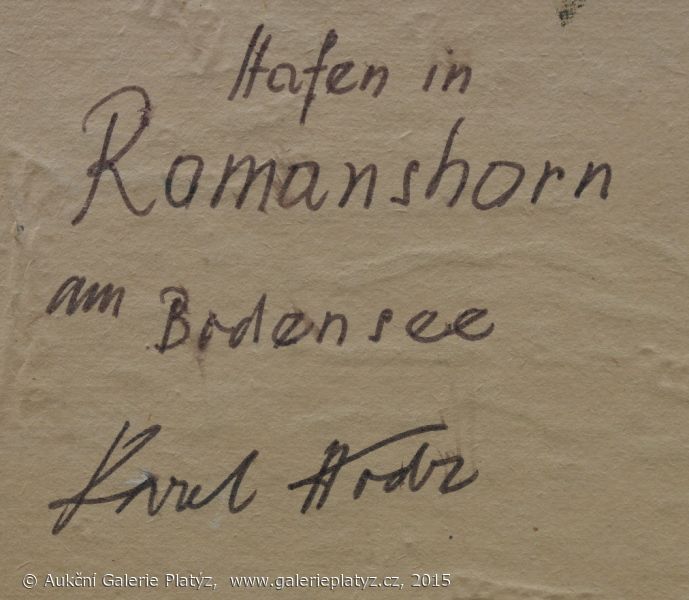 Hafen in
Romanshorn
am Bodensee
Karel Hodr
© Aukční Galerie Platýz, www.galerieplatyz.cz, 2015